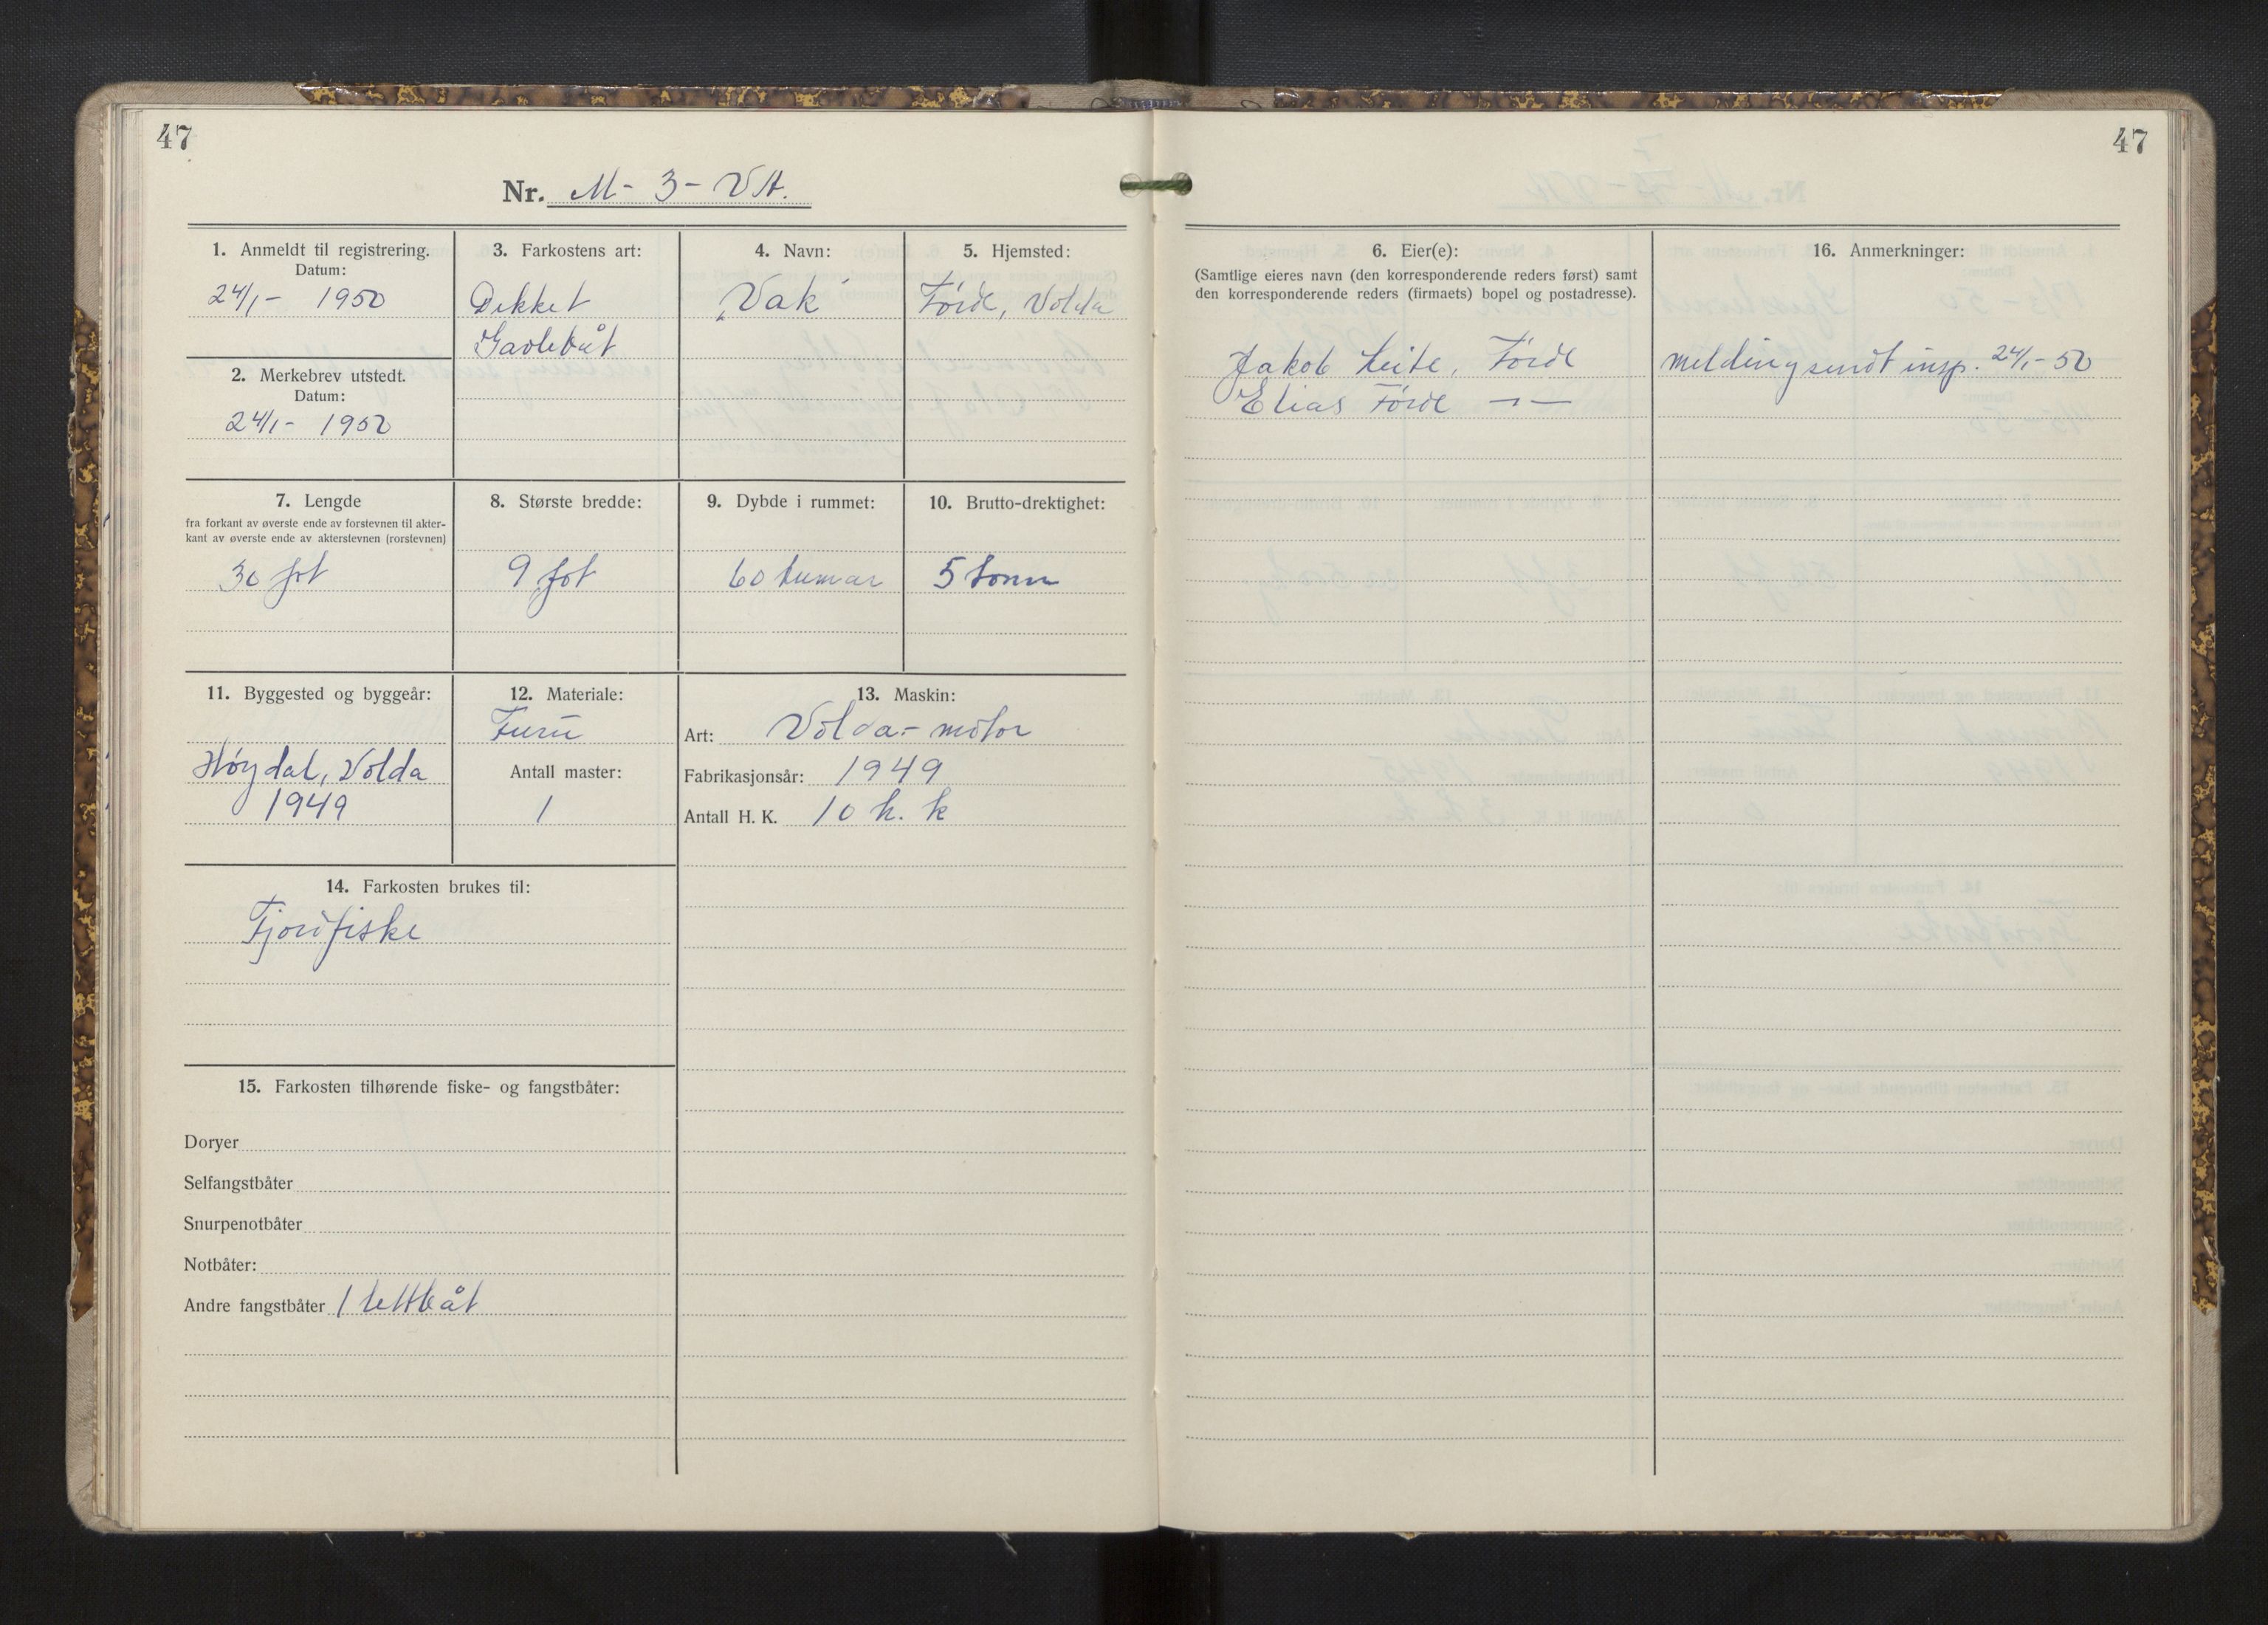 47
Nr. M - 3 - VA.
1. Anmeldt til registrering.
Datum:
24/1 - 1950
2. Merkebrev utstedt.
Datum:
24/1 - 1950
3. Farkostens art:
Dekket
Gavlebåt
4. Navn:
„Vak"
5. Hjemsted:
Förde, Volda
7. Lengde
fra forkant av øverste ende av forstevnen til akter-
kant av øverste ende av akterstevnen (rorstevnen)
30 fot
8. Største bredde:
9 fot
9. Dybde i rummet:
60 tumar
10. Brutto-drektighet:
5 tonn
11. Byggested og byggeår:
Høydal, Volda
1949
12. Materiale:
Furu
Antall master:
1
13. Maskin:
Art: Volda-motor
Fabrikasjonsår: 1949
Antall H. K. 10 h. k
14. Farkosten brukes til:
Fjordfiske
15. Farkosten tilhørende fiske- og fangstbåter:
Doryer
Selfangstbåter
Snurpenotbåter
Notbåter:
Andre fangstbåter 1 lettbåt
47
6. Eier(e):
(Samtlige eieres navn (den korresponderende reders først) samt
den korresponderende reders (firmaets) bopel og postadresse).
Jakob Leite, Förde
Elias Förde —"—
16. Anmerkninger:
melding sendt insp. 24/1 - 50